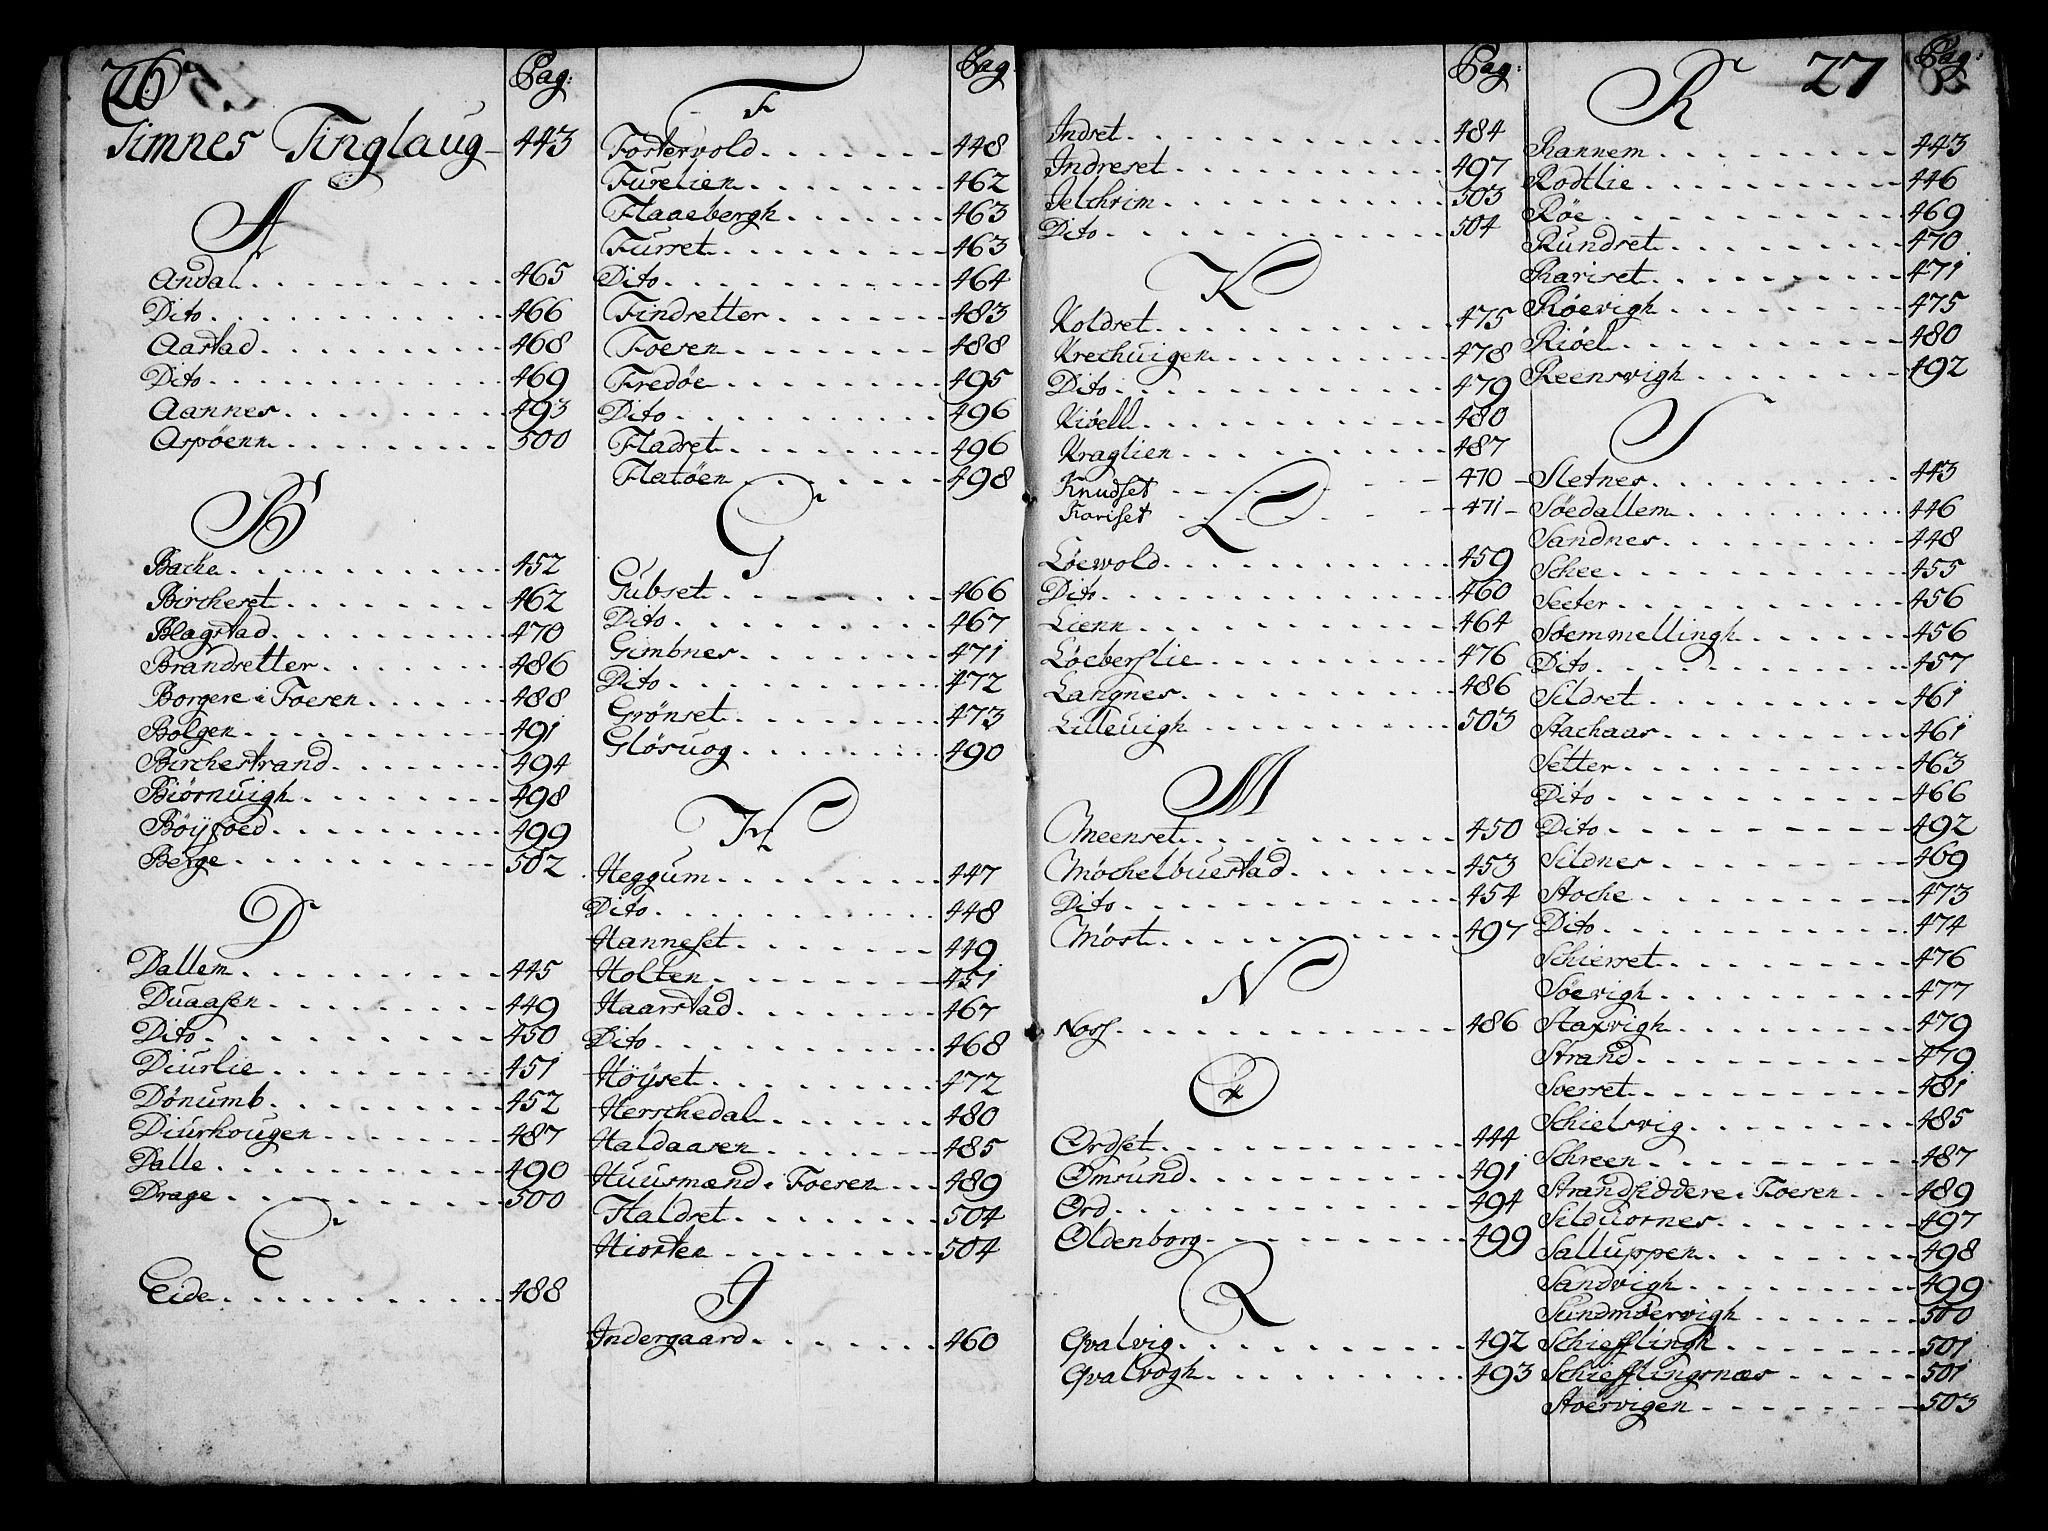 26
Pag:
Timnes Tinglaug 443
A
Andal 465
Dito 466
Aastad 468
Dito 469
Aannes 493
Aspöenn 500
B
Bache 452
Bircheset 462
Blagstad 470
Brandsetter 486
Borgere i Foesen 488
Bolgen 491
Birchestrand 494
Biörnuigh 498
Böÿfoed 499
Berge 502
D
Dallem 445
Duaasen 449
Dito 450
Diurlie 451
Dönumb 452
Diurhougen 487
Dalle 490
Drage 500
E
Eide 488
Pag
F
Fostervold 448
Furelien 462
Flaaebergh 463
Furset 463
Dito 464
Findsetter 483
Foesen 488
Fredöe 495
Dito 496
Fladset 496
Flatöen 498
G
Gubset 466
Dito 467
Gimbnes 471
Dito 472
Grönset 473
Glösuog 490
H
Heggum 447
Dito 448
Hanneset 449
Holten 451
Haarstad 467
Dito 468
Höÿset 472
Herschedal 480
Haldaasen 485
Huusmænd i Foesen 489
Haldset 504
Hiorten 504
I
Indergaard 460
Pag:
Indset 484
Indreset 497
Jelchrim 503
Dito 504
K
Koldset 475
Krechuigen 478
Dito 479
Kiöell 480
Kraglien 487
Knudset 470
Kariset 471
L
Löewold 459
Dito 460
Lienn 464
Löeberslie 476
Langnes 486
Lilleuigh 503
M
Meenset 450
Möchelbuestad 453
Dito 454
Möst 497
N
Noss 486
O
Ordset 444
Omsund 491
Ord 494
Oldenborg 499
Q
Qvalvig 492
Qvalvogh 493
27
Pag:
R
Rannem 443
Rodtlie 446
Röe 469
Rundset 470
Rariset 471
Röevigh 475
Riöel 480
Reensvigh 492
S
Sletnes 443
Söedallem 446
Sandnes 448
Schee 455
Seeter 456
Söemmellingh 456
Dito 457
Sildset 461
Stachaas 461
Setter 463
Dito 466
Dito 492
Sildnes 469
Stoche 473
Dito 474
Schierset 476
Söevigh 477
Stapvigh 479
Strand 479
Soerset 481
Schielsvig 485
Schreen 487
Strandsiddere i Foesen 489
Silduornes 497
Salluppen 498
Sandvigh 499
Sundmöervigh 500
Schiefflingh 501
Schiefflingsnæs 501
Stoervigen 503